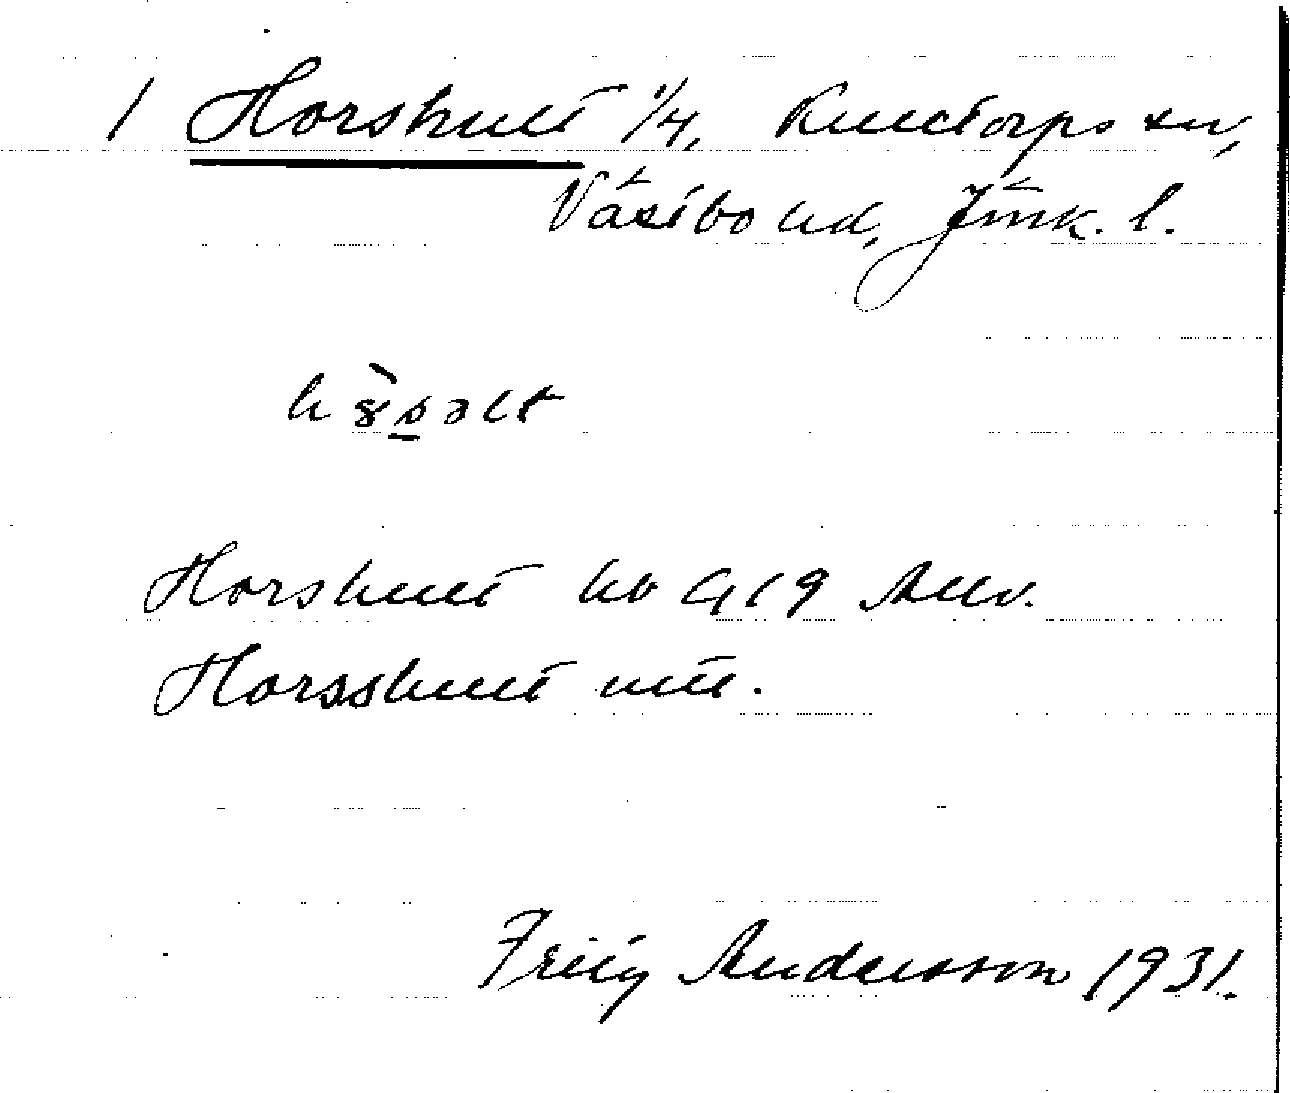 1 Horshult 1/4, Kulltorps sn,
Västbo hd, Jönk. l.
Horshult hb G 19 Allv.
Horsshult mtl.
Andersson 1931.